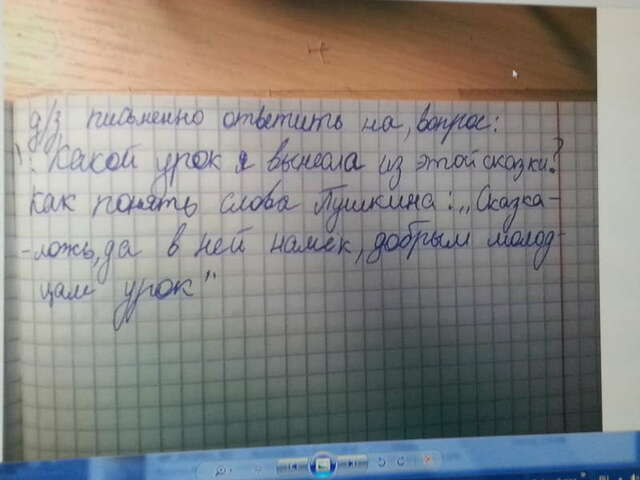 д/з письменно ответить на, вопрос:
: Какой урок я вынесла из этой сказки?
Как понять слова Пушкина: „Сказка-
-ложь, да в ней намек, добрым молод-
цам урок"